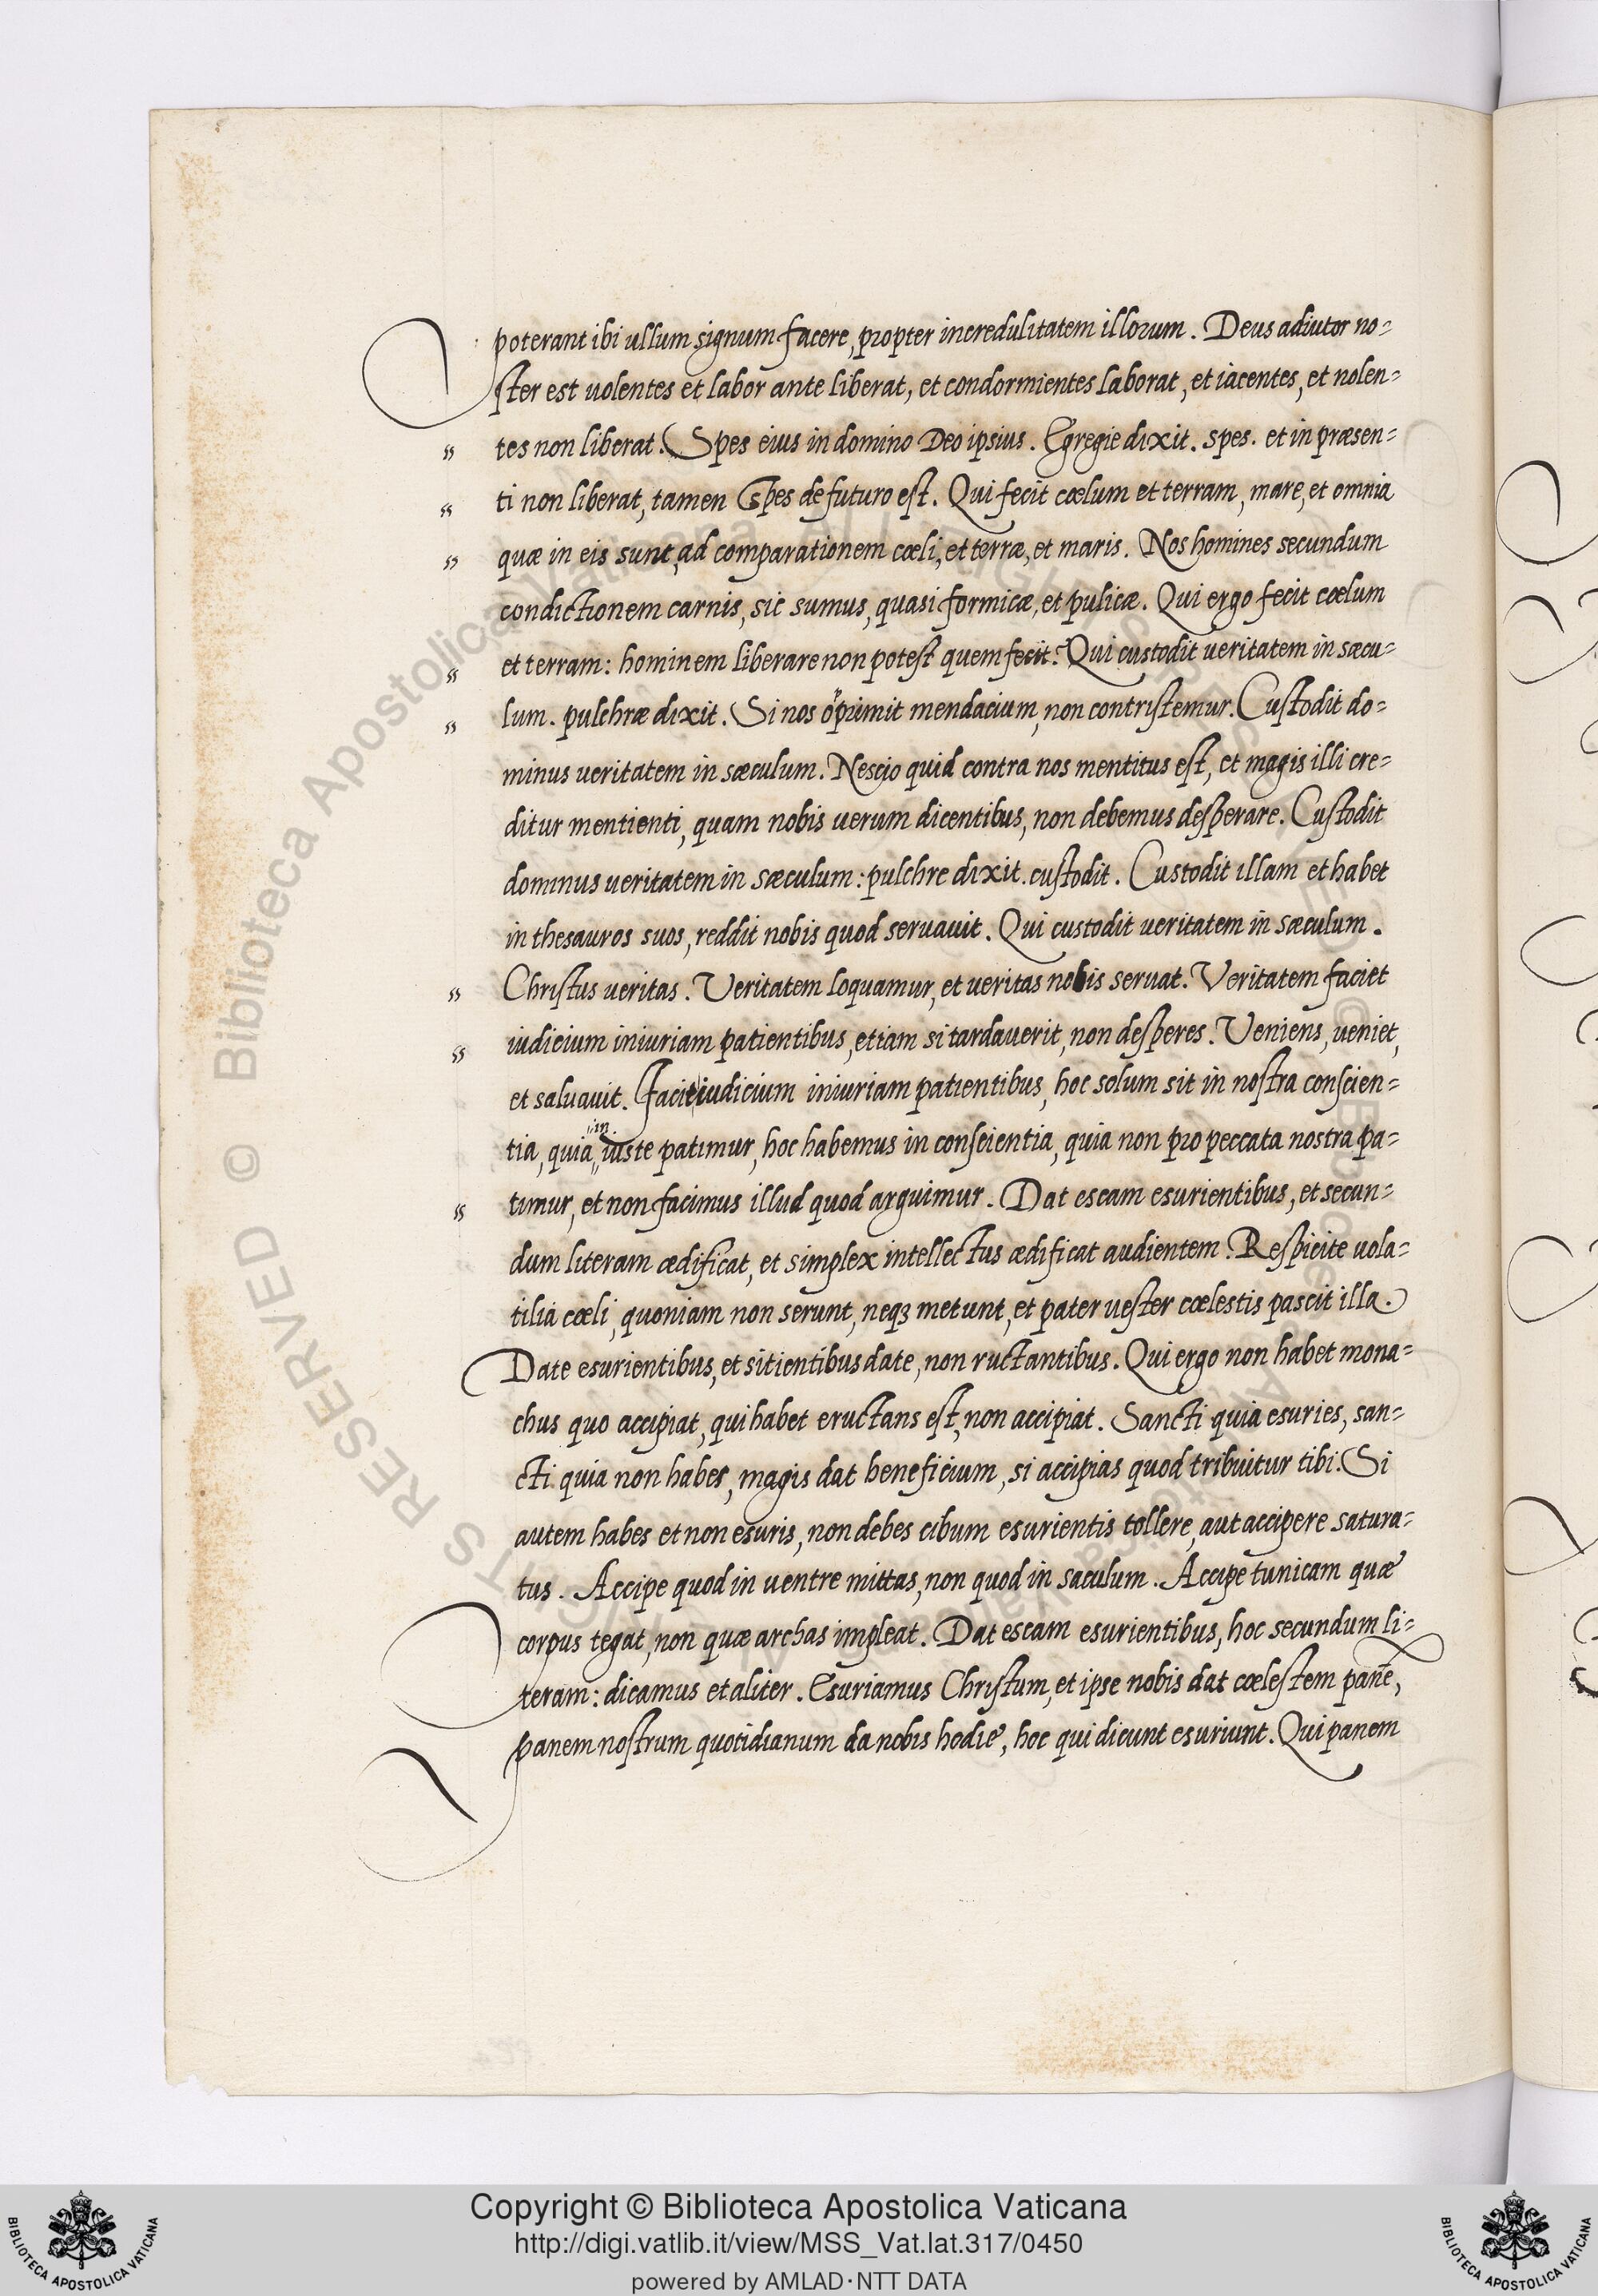 poterant ibi ullum signum facere, propter incredulitatem illorum. Deus adiutor no=
ster est volentes et labor ante liberat, et condormientes laborat, et iacentes, et nolen=
" tes non liberat. Spes eius in domino Deo ipsius. Egregie dixit. spes. et in præsen=
" ti non liberat, tamen Spes de futuro est. Qui fecit cœlum et terram, mare, et omnia
" quæ in eis sunt, ad comparationem cœli, et terræ, et maris. Nos homines secundum
condictionem carnis, sic sumus, quasi formicæ, et pulicæ. Qui ergo fecit cœlum
" et terram: hominem liberare non potest quem fecit? Qui custodit veritatem in sæcu=
" lum. pulchræ dixit. Si nos opprimit mendacium, non contristemur. Custodit do=
minus veritatem in sæculum. Nescio quid contra nos mentitus est, et magis illi cre=
ditur mentienti, quam nobis uerum dicentibus, non debemus desperare. Custodit
dominus ueritatem in sæculum: pulchre dixit. custodit. Custodit illam et habet
in thesauros suos, reddit nobis quod seruauit. Qui custodit veritatem in sæculum.
" Christus ueritas. Veritatem loquamur, et ueritas nobis seruat. Veritatem faciet
" iudicium iniuriam patientibus, etiam si tardauerit, non desperes. Veniens, ueniet,
et saluauit. Facit iudicium iniuriam patientibus, hoc solum sit in nostra conscien=
in
tia, quia iuste patimur, hoc habemus in conscientia, quia non pro peccata nostra pa=
" timur, et non facimus illud quod arguimur. Dat escam esurientibus, et secun=
dum literam ædificat, et simplex intellectus ædificat audientem. Respicite uola=
tilia cœli, quoniam non serunt, neqꝫ metunt, et pater uester cœlestis pascit illa.
Date esurientibus, et sitientibus date, non ructantibus. Qui ergo non habet mona=
chus quo accipiat, qui habet eructans est, non accipiat. Sancti quia esuries, san=
cti quia non habes, magis dat beneficium, si accipias quod tribuitur tibi. Si
autem habes et non esuris, non debes cibum esurientis tollere, aut accipere satura=
tus. Accipe quod in uentre mittas, non quod in saculum. Accipe tunicam quæ
corpus tegat, non quæ archas impleat. Dat escam esurientibus, hoc secundum li=
teram: dicamus et aliter. Esuriamus Christum, et ipse nobis dat cœlestem panē,
panem nostrum quotidianum da nobis hodie, hoc qui dicunt esuriunt. Qui panem
Copyright © Biblioteca Apostolica Vaticana
http://digi.vatlib.it/view/MSS_Vat.lat.317/0450
powered by AMLAD·NTT DATA
BIBLIOTECA APOSTOLICA VATICANA
BIBLIOTECA APOSTOLICA VATICANA